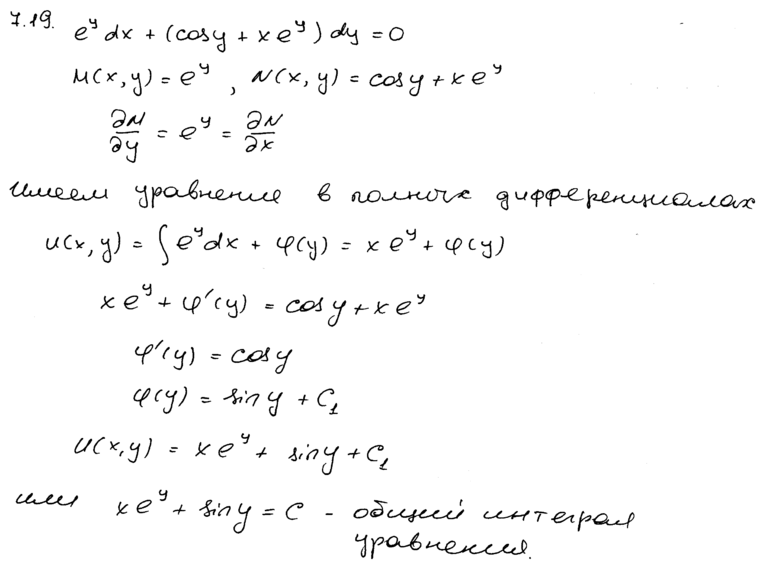 7.19. e^y dx + (cos y + x e^y) dy = 0
M(x, y) = e^y , N(x, y) = cos y + x e^y
∂M/∂y = e^y = ∂N/∂x
имеем уравнение в полных дифференциалах
u(x, y) = ∫ e^y dx + φ(y) = x e^y + φ(y)
x e^y + φ'(y) = cos y + x e^y
φ'(y) = cos y
φ(y) = sin y + C₁
u(x, y) = x e^y + sin y + C₁
или x e^y + sin y = C - общий интеграл
уравнения.